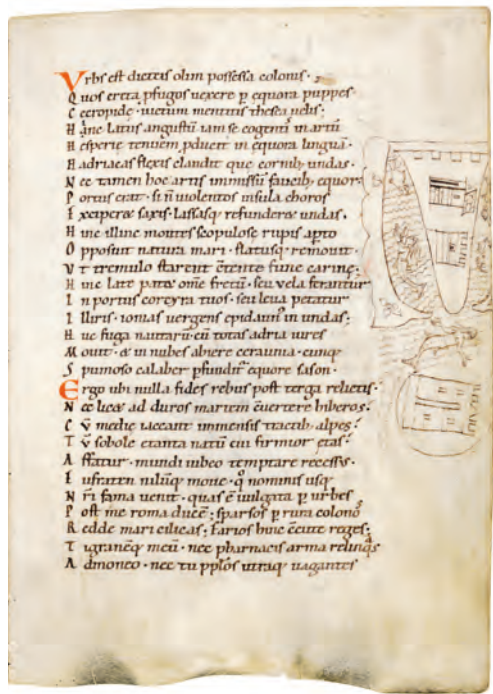 Vrbs est dicteis olim possessa colonis.
Quos creta ꝓfugos uexere ꝑ equora puppes.
Cecropide. uictum mentitis thesea uelis:
Hanc latus angustū iam se cogentis in artū
Hesperie tenuem ꝓducit in equora linguā.
Hadriacas flexis claudit que cornib; undas.
Nec tamen hoc artis inmissū faucib; equor:
Portus erat. si n̄ uiolentos insula choros
Exciperet saxis. lassasq; refunderet undas.
Hinc illinc montes scopulose rupis apto
Opposuit natura mari. flatusq; remouit.
Vt tremulo starent ctente fune carine:
Hinc late patet ōme fretū. seu uela ferantur
In portus corcyra tuos. seu leua petatur
Illiris. ionias uergens epidaun̄ in undas:
Huc fuga nautarū. cū totas adria uires
Mouit. & in nubes abiere ceraunia. cunq;
Spumoso calaber ꝑfundit̄ equore sason.
Ergo ubi nulla fides rebus post terga relictis.
Nec licet ad duros martem cuertere hiberos:
Cū medie iaceant immensis tractib; alpes:
Tū sobole e tanta natū cui firmior etas.
Affatur. mundi iubeo temptare recessus.
Eufraten nilūq; moue. q̊ nominis usq;
Nr̄i fama uenit. quas ē uulgata ꝑ urbes
Post me roma ducē: sparsos ꝑ rura colonos
Redde mari cilicas: farios hinc ccute reges:
Tigranēq; meū. nec pharnacis arma relinqs
Admoneo. nec tu pplos utraq; uagantes